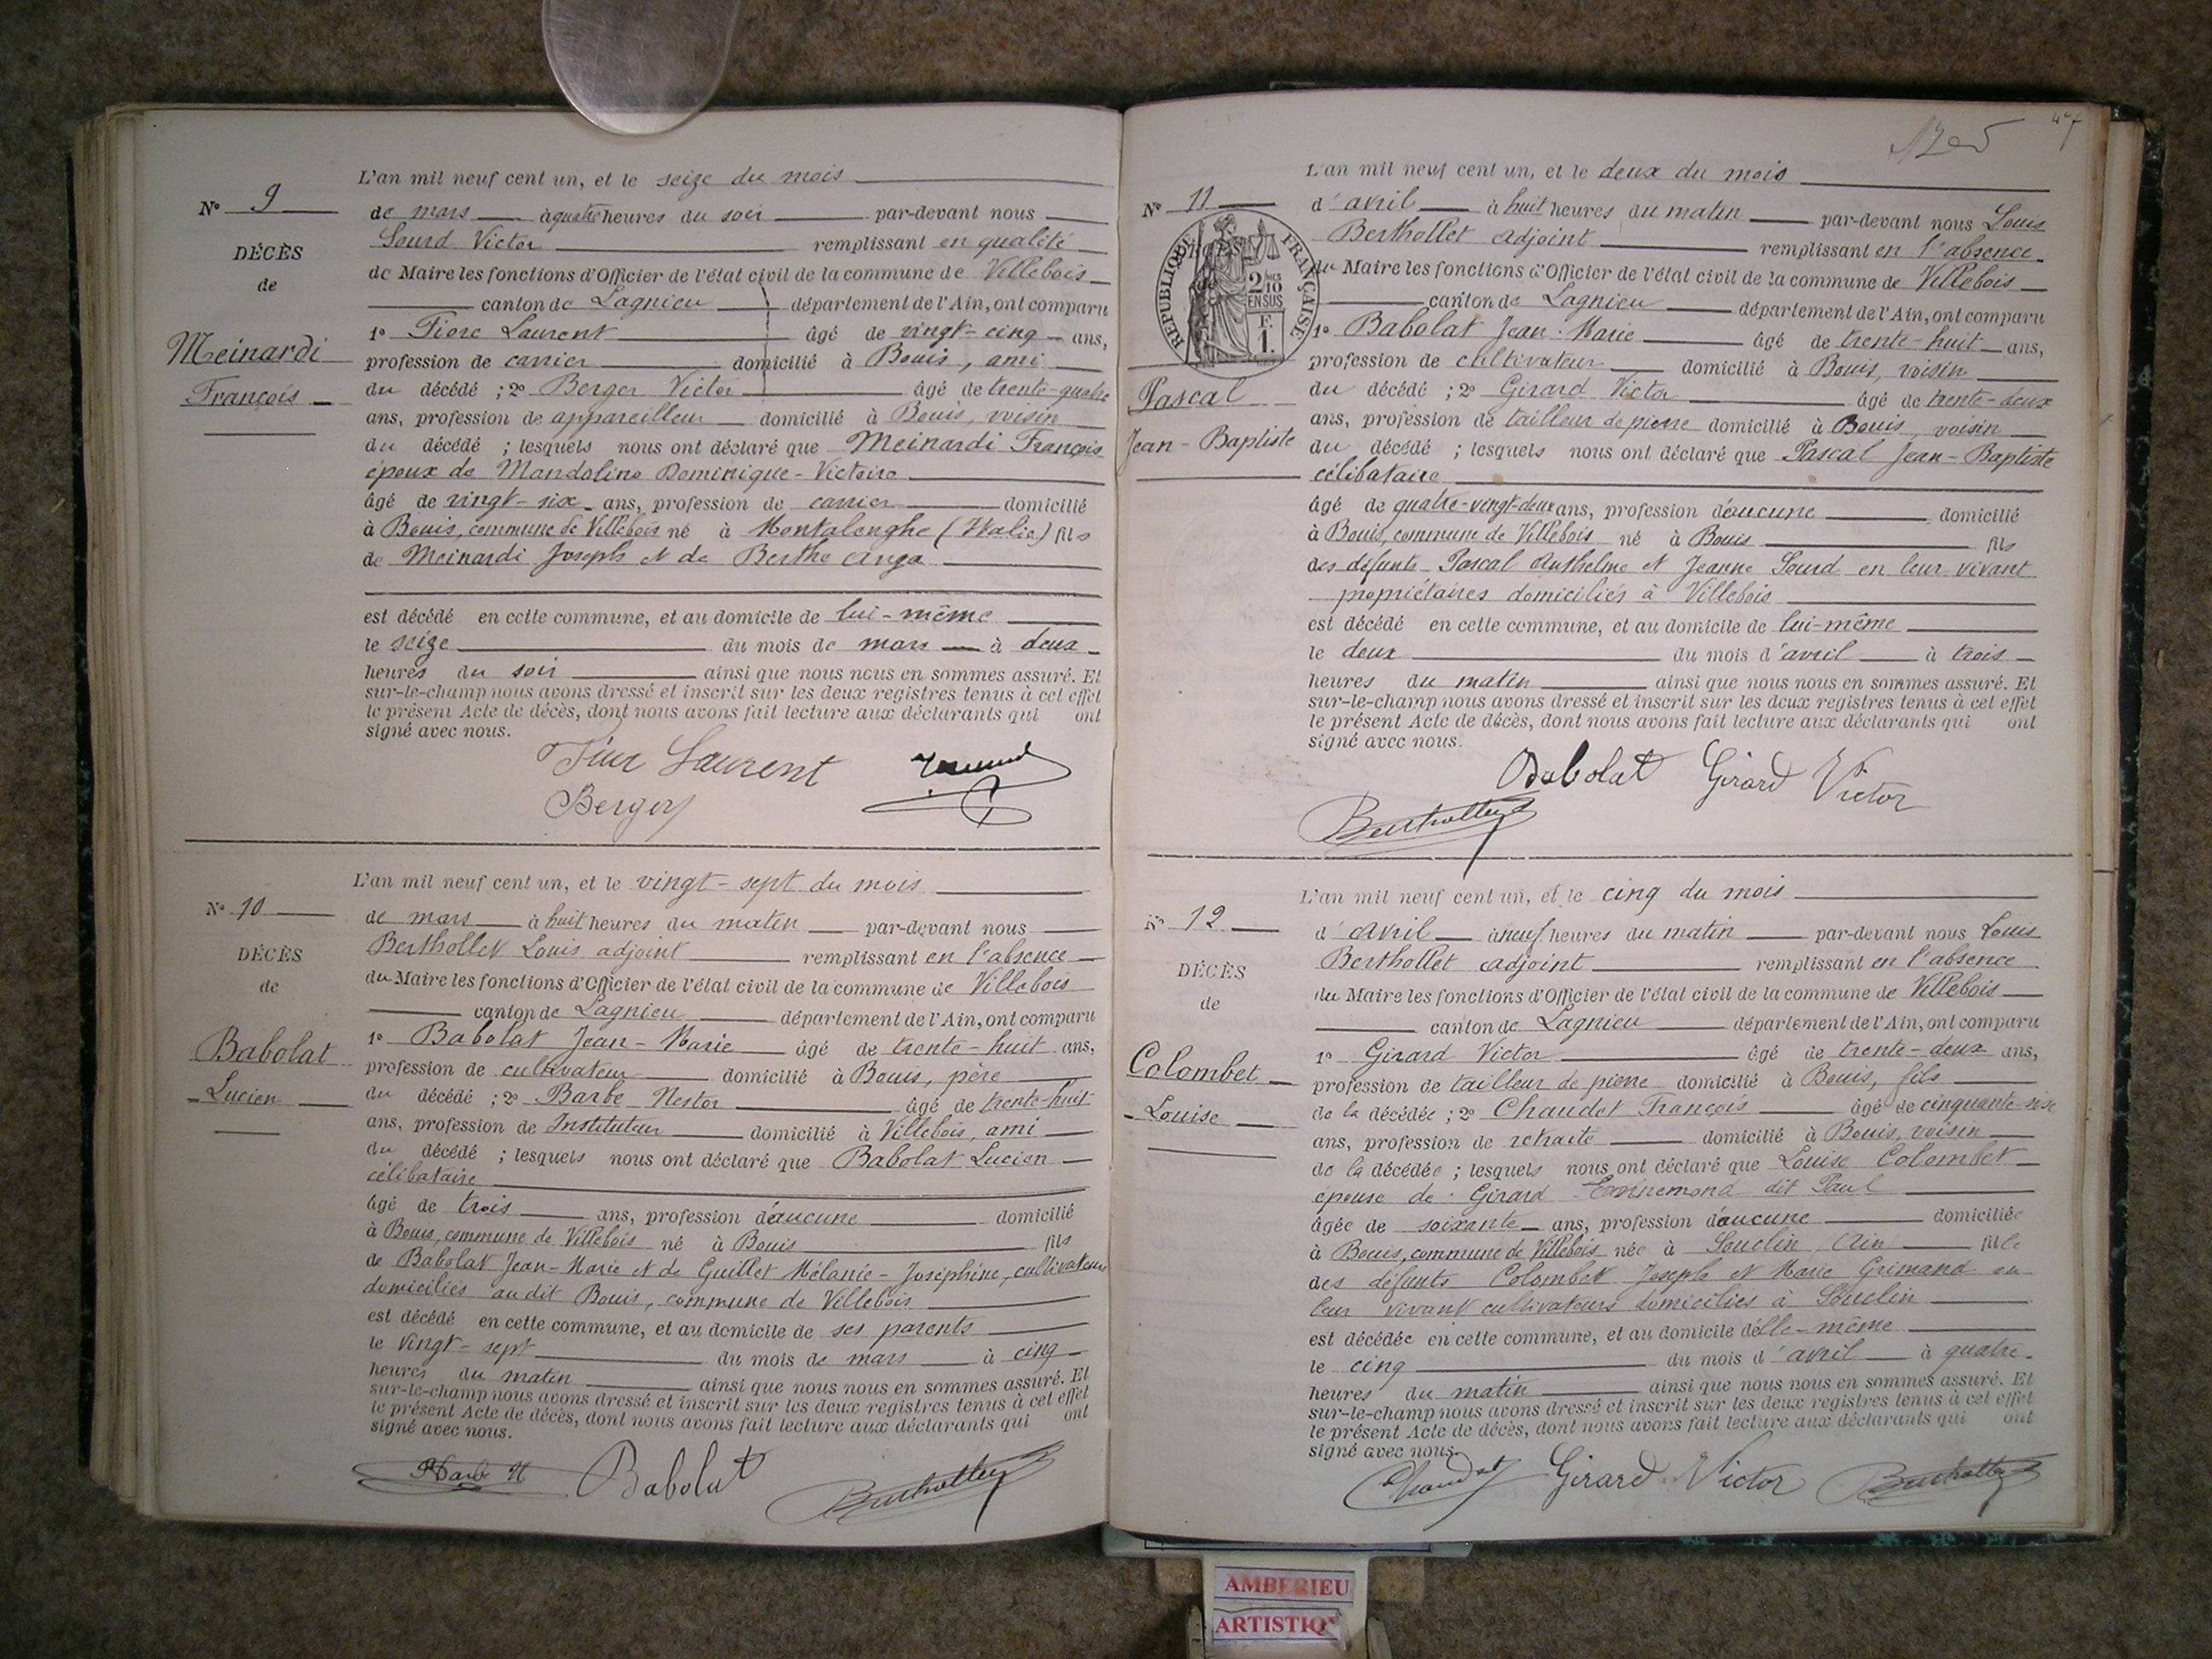 L'an mil neuf cent un, et le seize du mois
N° 9
de mars à quatre heures du soir par-devant nous
Sourd Victor remplissant en qualité
DÉCÈS
de Maire les fonctions d'Officier de l'état civil de la commune de Villebois
de
canton de Lagnieu département de l'Ain, ont comparu
1° Fiore Laurent âgé de vingt-cinq ans,
Meinardi
profession de carrier domicilié à Bouis, ami
François
du décédé ; 2° Berger Victor âgé de trente-quatre
ans, profession de appareilleur domicilié à Bouis, voisin
du décédé ; lesquels nous ont déclaré que Meinardi François
époux de Mandolino Dominique-Victoire
âgé de vingt-six ans, profession de carrier domicilié
à Bouis, commune de Villebois né à Montalenghe (Italie) fils
de Meinardi Joseph et de Berthe
est décédé en cette commune, et au domicile de lui-même
le seize du mois de mars à deux
heures du soir ainsi que nous nous en sommes assuré. Et
sur-le-champ nous avons dressé et inscrit sur les deux registres tenus à cet effet
le présent Acte de décès, dont nous avons fait lecture aux déclarants qui ont
signé avec nous.
Laurent
Berger
L'an mil neuf cent un, et le vingt-sept du mois
N° 10
de mars à huit heures du matin par-devant nous
Berthollet Louis adjoint remplissant en l'absence
DÉCÈS
du Maire les fonctions d'Officier de l'état civil de la commune de Villebois
de
canton de Lagnieu département de l'Ain, ont comparu
1° Babolat Jean-Marie âgé de trente-huit ans,
Babolat
profession de cultivateur domicilié à Bouis, père
Lucien
du décédé ; 2° Barbe Nestor âgé de trente-huit
ans, profession de Instituteur domicilié à Villebois, ami
du décédé ; lesquels nous ont déclaré que Babolat Lucien
célibataire
âgé de trois ans, profession d'aucune domicilié
à Bouis, commune de Villebois né à Bouis fils
de Babolat Jean-Marie et de Guillet Mélanie-Joséphine, cultivateurs
domiciliés au dit Bouis, commune de Villebois
est décédé en cette commune, et au domicile de ses parents
le vingt-sept du mois de mars à cinq
heures du matin ainsi que nous nous en sommes assuré. Et
sur-le-champ nous avons dressé et inscrit sur les deux registres tenus à cet effet
le présent Acte de décès, dont nous avons fait lecture aux déclarants qui ont
signé avec nous.
Barbe N Babolat Berthollet
47
L'an mil neuf cent un, et le deux du mois
N° 11
d'avril à huit heures du matin par-devant nous Louis
Berthollet adjoint remplissant en l'absence
RÉPUBLIQUE FRANÇAISE
2/10 EN SUS
F. 1.
du Maire les fonctions d'Officier de l'état civil de la commune de Villebois
canton de Lagnieu département de l'Ain, ont comparu
1° Babolat Jean-Marie âgé de trente-huit ans,
profession de cultivateur domicilié à Bouis, voisin
Pascal
du décédé ; 2° Girard Victor âgé de trente-deux
ans, profession de tailleur de pierre domicilié à Bouis, voisin
Jean-Baptiste
du décédé ; lesquels nous ont déclaré que Pascal Jean-Baptiste
célibataire
âgé de quatre-vingt-deux ans, profession d'aucune domicilié
à Bouis, commune de Villebois né à Bouis fils
des défunts Pascal Anthelme et Jeanne Sourd en leur vivant
propriétaires domiciliés à Villebois
est décédé en cette commune, et au domicile de lui-même
le deux du mois d'avril à trois
heures du matin ainsi que nous nous en sommes assuré. Et
sur-le-champ nous avons dressé et inscrit sur les deux registres tenus à cet effet
le présent Acte de décès, dont nous avons fait lecture aux déclarants qui ont
signé avec nous.
Babolat Girard Victor
Berthollet
L'an mil neuf cent un, et le cinq du mois
N° 12
d'avril à neuf heures du matin par-devant nous Louis
Berthollet adjoint remplissant en l'absence
DÉCÈS
du Maire les fonctions d'Officier de l'état civil de la commune de Villebois
de
canton de Lagnieu département de l'Ain, ont comparu
1° Girard Victor âgé de trente-deux ans,
Colombet
profession de tailleur de pierre domicilié à Bouis, fils
Louise
de la décédée ; 2° Chaudet François âgé de cinquante-six
ans, profession de retraité domicilié à Bouis, voisin
de la décédée ; lesquels nous ont déclaré que Louise Colombet
épouse de Girard Ennemond dit Paul
âgée de soixante ans, profession d'aucune domiciliée
à Bouis, commune de Villebois née à Souclin (Ain) fille
des défunts Colombet Joseph et Marie Grimand en
leur vivant cultivateurs domiciliés à Souclin
est décédée en cette commune, et au domicile d'elle-même
le cinq du mois d'avril à quatre
heures du matin ainsi que nous nous en sommes assuré. Et
sur-le-champ nous avons dressé et inscrit sur les deux registres tenus à cet effet
le présent Acte de décès, dont nous avons fait lecture aux déclarants qui ont
signé avec nous.
Chaudet Girard Victor Berthollet
AMBERIEU
ARTISTIQ